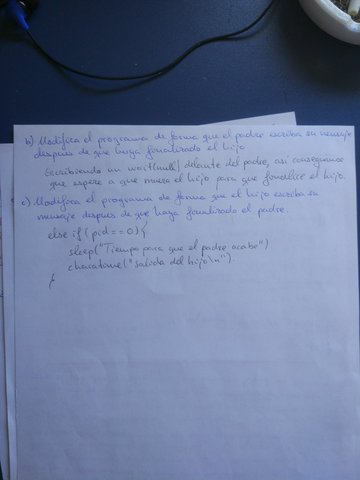 b) Modifica el programa de forma que el padre escriba su mensaje
después de que haya finalizado el hijo
Escribiendo un wait(null) delante del padre, así conseguimos
que espere a que muera el hijo para que finalice el hijo.
c) Modifica el programa de forma que el hijo escriba su
mensaje después de que haya finalizado el padre.
else if (pid==0){
sleep("Tiempo para que el padre acabe")
charatome("Salida del hijo\n")
}